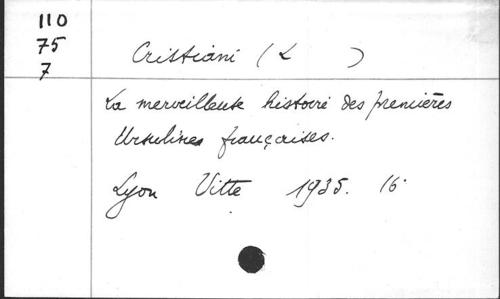 110
75
7
Cristiani (L )
La merveilleuse histoire des premières
Ursulines françaises.
Lyon Vitte 1935. 16°